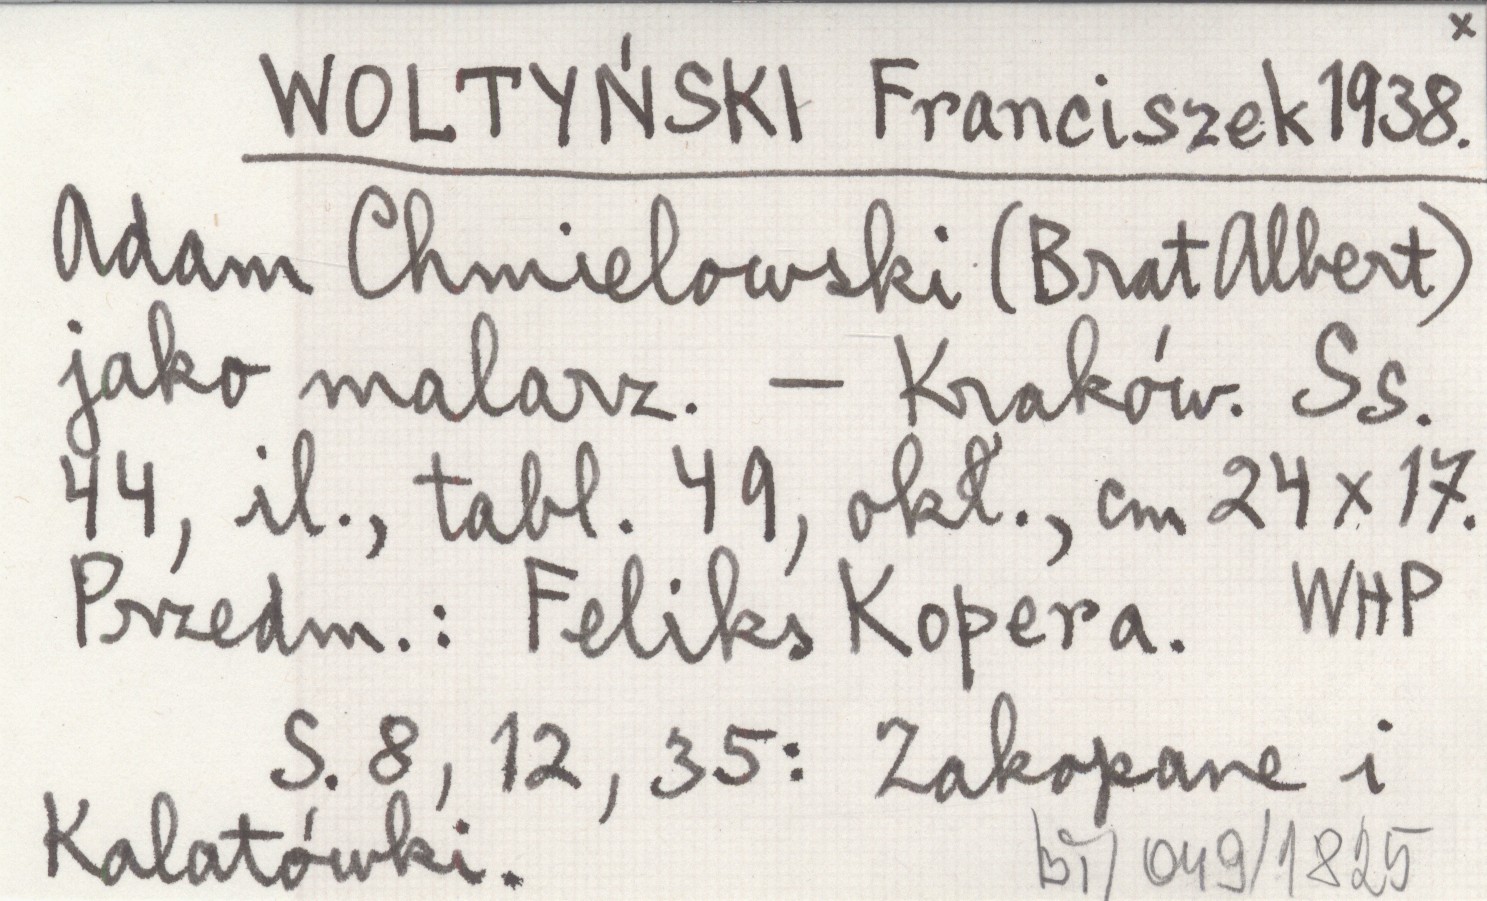 x
WOLTYŃSKI Franciszek 1938.
Adam Chmielowski (Brat Albert)
jako malarz. – Kraków. Ss.
44, il., tabl. 49, okł., cm 24 x 17.
Przedm.: Feliks Kopera. WHP
S. 8, 12, 35: Zakopane i
Kalatówki.
049/1825